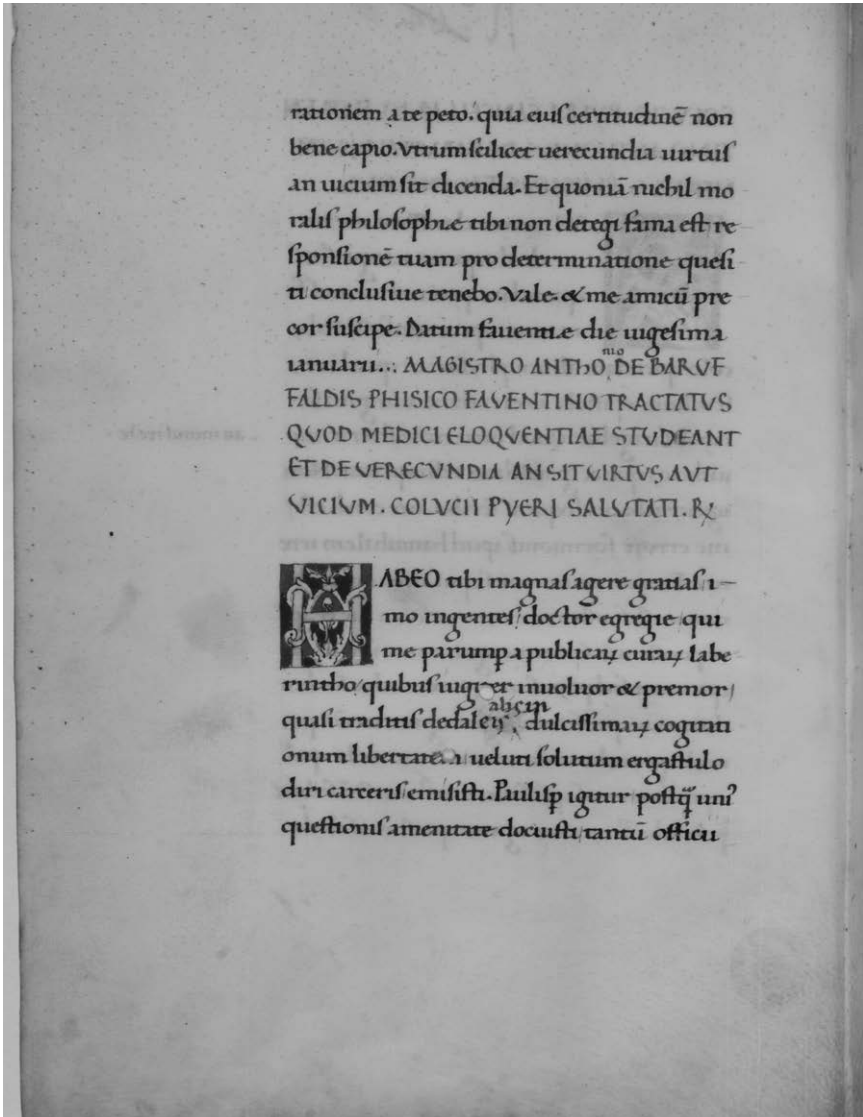 rationem a te peto. quia eius certitudinē non
bene capio. Vtrum scilicet uerecundia uirtus
an uicium sit dicenda. Et quoniā nichil mo
ralis philosophie tibi non detegi fama est re
sponsionē tuam pro determinatione quesi
ti conclusiue tenebo. Vale. & me amicū pre
cor suscipe. Datum fauentie die uigesima
ianuarii... MAGISTRO ANThO nio DE BARVF
FALDIS PHISICO FAVENTINO TRACTATVS
QVOD MEDICI ELOQVENTIAE STVDEANT
ET DE VERECVNDIA AN SIT VIRTVS AVT
VICIVM. COLVCII PyERI SALVTATI. R
HABEO tibi magnas agere gratias i-
mo ingentes/ doctor egregie qui
me parumꝑ a publicaꝝ curaꝝ labe
rintho/ quibus iugiter inuoluor & premor/
quasi traditis dedaleis, abscin dulcissimaꝝ cogitati
onum libertate. ueluti solutum ergastulo
diri carceris emisisti. Paulisꝑ igitur postq̄ uni᾽
questionis amenitate docuisti tantū officii